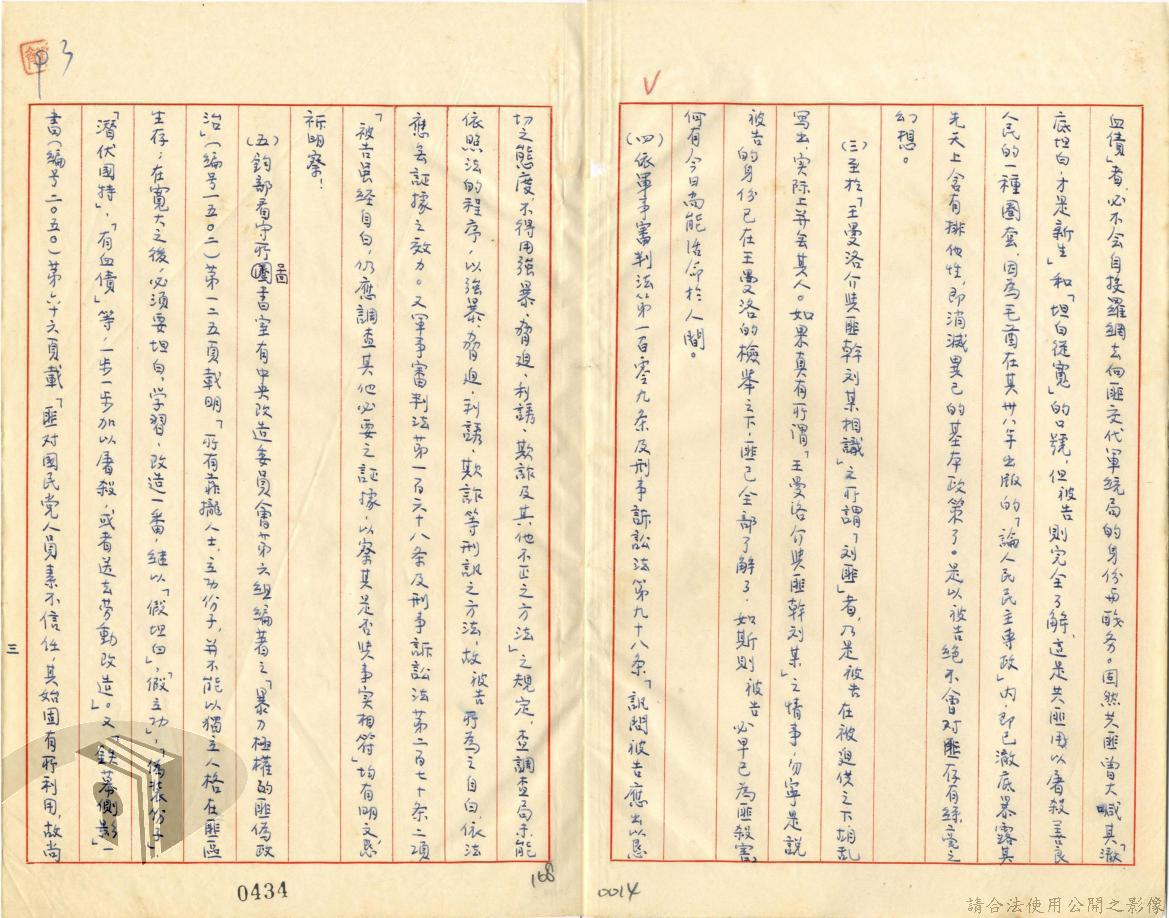 血債」者，必不會自投羅網去向匪交代軍統局的身份与職务。固然共匪曾大喊其「澈
底坦白，才是新生」和「坦白從寬」的口號，但被告則完全了解，這是共匪用以屠殺善良
人民的一種圈套，因為毛酋在其卅八年出版的「論人民民主專政」內，即已澈底暴露其
先天上含有排他性，即消滅異己的基本政策了。是以被告絕不會对匪存有絲毫之
幻想。
(三)至於「王曼洛介與匪幹刘某相識」之所謂「刘匪」者，乃是被告在被迫供之下胡乱
寫出，实际上並無其人。如果真有所谓「王曼洛介與匪幹刘某」之情事，勿寧是說
被告的身份已在王曼洛的檢举之下，匪已全部了解了，如斯則被告必早已為匪殺害，
何有今日尚能活命於人間。
(四)依軍事審判法第一百零九条及刑事訴訟法第九十八条「訊問被告應出以恳
切之態度，不得用强暴、脅迫、利誘、欺詐及其他不正之方法」之規定，查調查局未能
依照法的程序，以強暴、脅迫、利誘、欺詐等刑訊之方法，故被告所為之自白，依法
應無証據之效力。又軍事審判法第一百六十八条及刑事訴訟法第二百七十条二項
「被告虽经自白，仍應調查其他必要之証據，以察其是否與事实相符」均有明文，恳
祈明察！
(五)鈞部看守所圖書室有中央改造委員會第六組編著之「暴力極權的匪偽政
治」(編号一五〇二)第一二五頁載明「所有靠攏人士、立功份子，并不能以獨立人格在匪區
生存；在寬大之後，必須要坦白，学習，改造一番，继以「假坦白」，「假立功」，「偽裝份子」，
「潛伏國特」，「有血債」等，一步一步加以屠殺，或者送去劳動改造」。又「鉄幕側影」一
書(編号二〇五〇)第六十六頁載「匪对國民党人員素不信任，其始固有所利用，故尚
三
0434
168
0014
3
請合法使用公開之影像